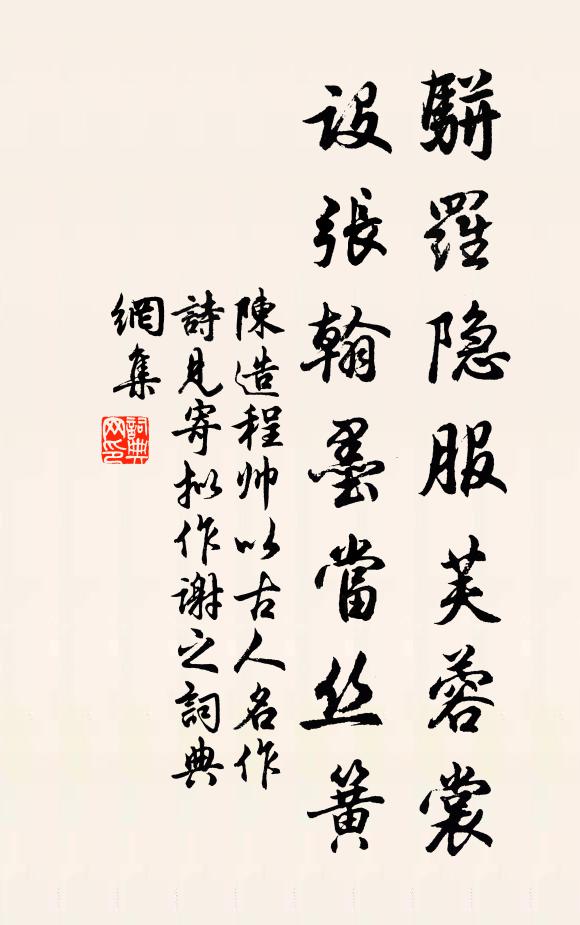 駢羅隐服芙蓉裳
設張翰墨當丝簧
陳造程帅以古人名作
詩見寄拟作谢之詞典
網集
詞典
网印